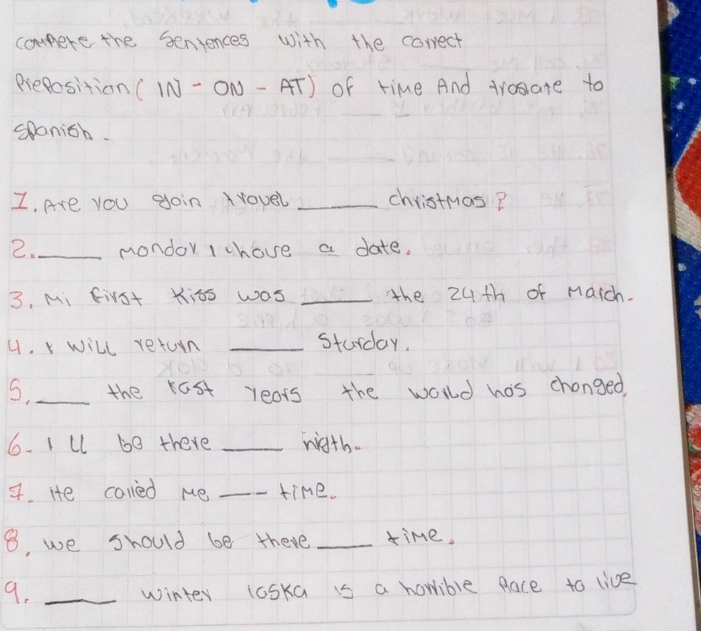 compere the Sentences with the correct
PrePosition ( IN - ON - AT) of time And traslate to
spanish.
I. Are you goin travel ____ christmas?
2. ____ monday i chave a date.
3. Mi first Kiss was ____ the 24th of March.
4. I will return ____ Sturday.
5. ____ the last years the world has changed.
6. I ll be there ____ nigth.
7. He called Me ____ time.
8. we should be there ____ time.
9. ____ winter laska is a horrible Place to live